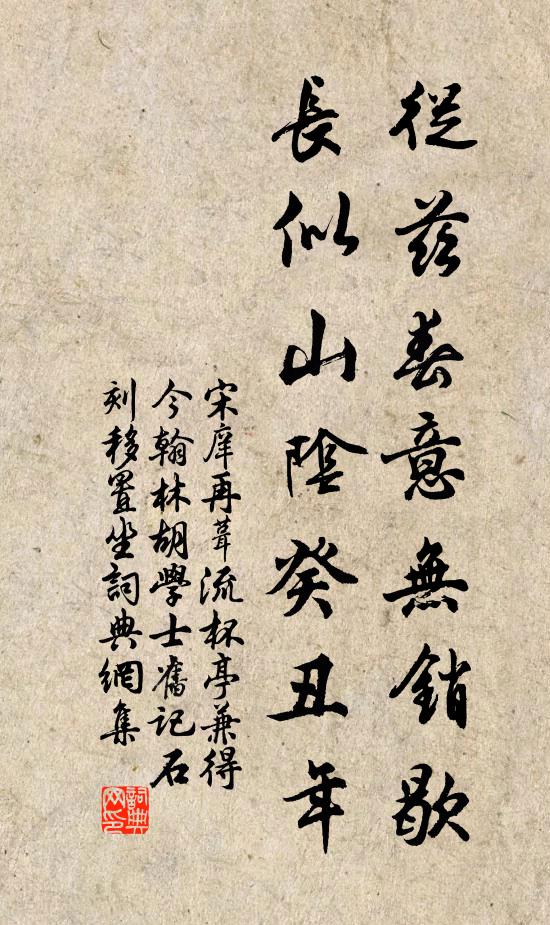 從茲春意無銷歇
長似山陰癸丑年
宋庠再葺流杯亭兼得
今翰林胡學士舊記石
刻移置坐詞典網集
詞典
网印